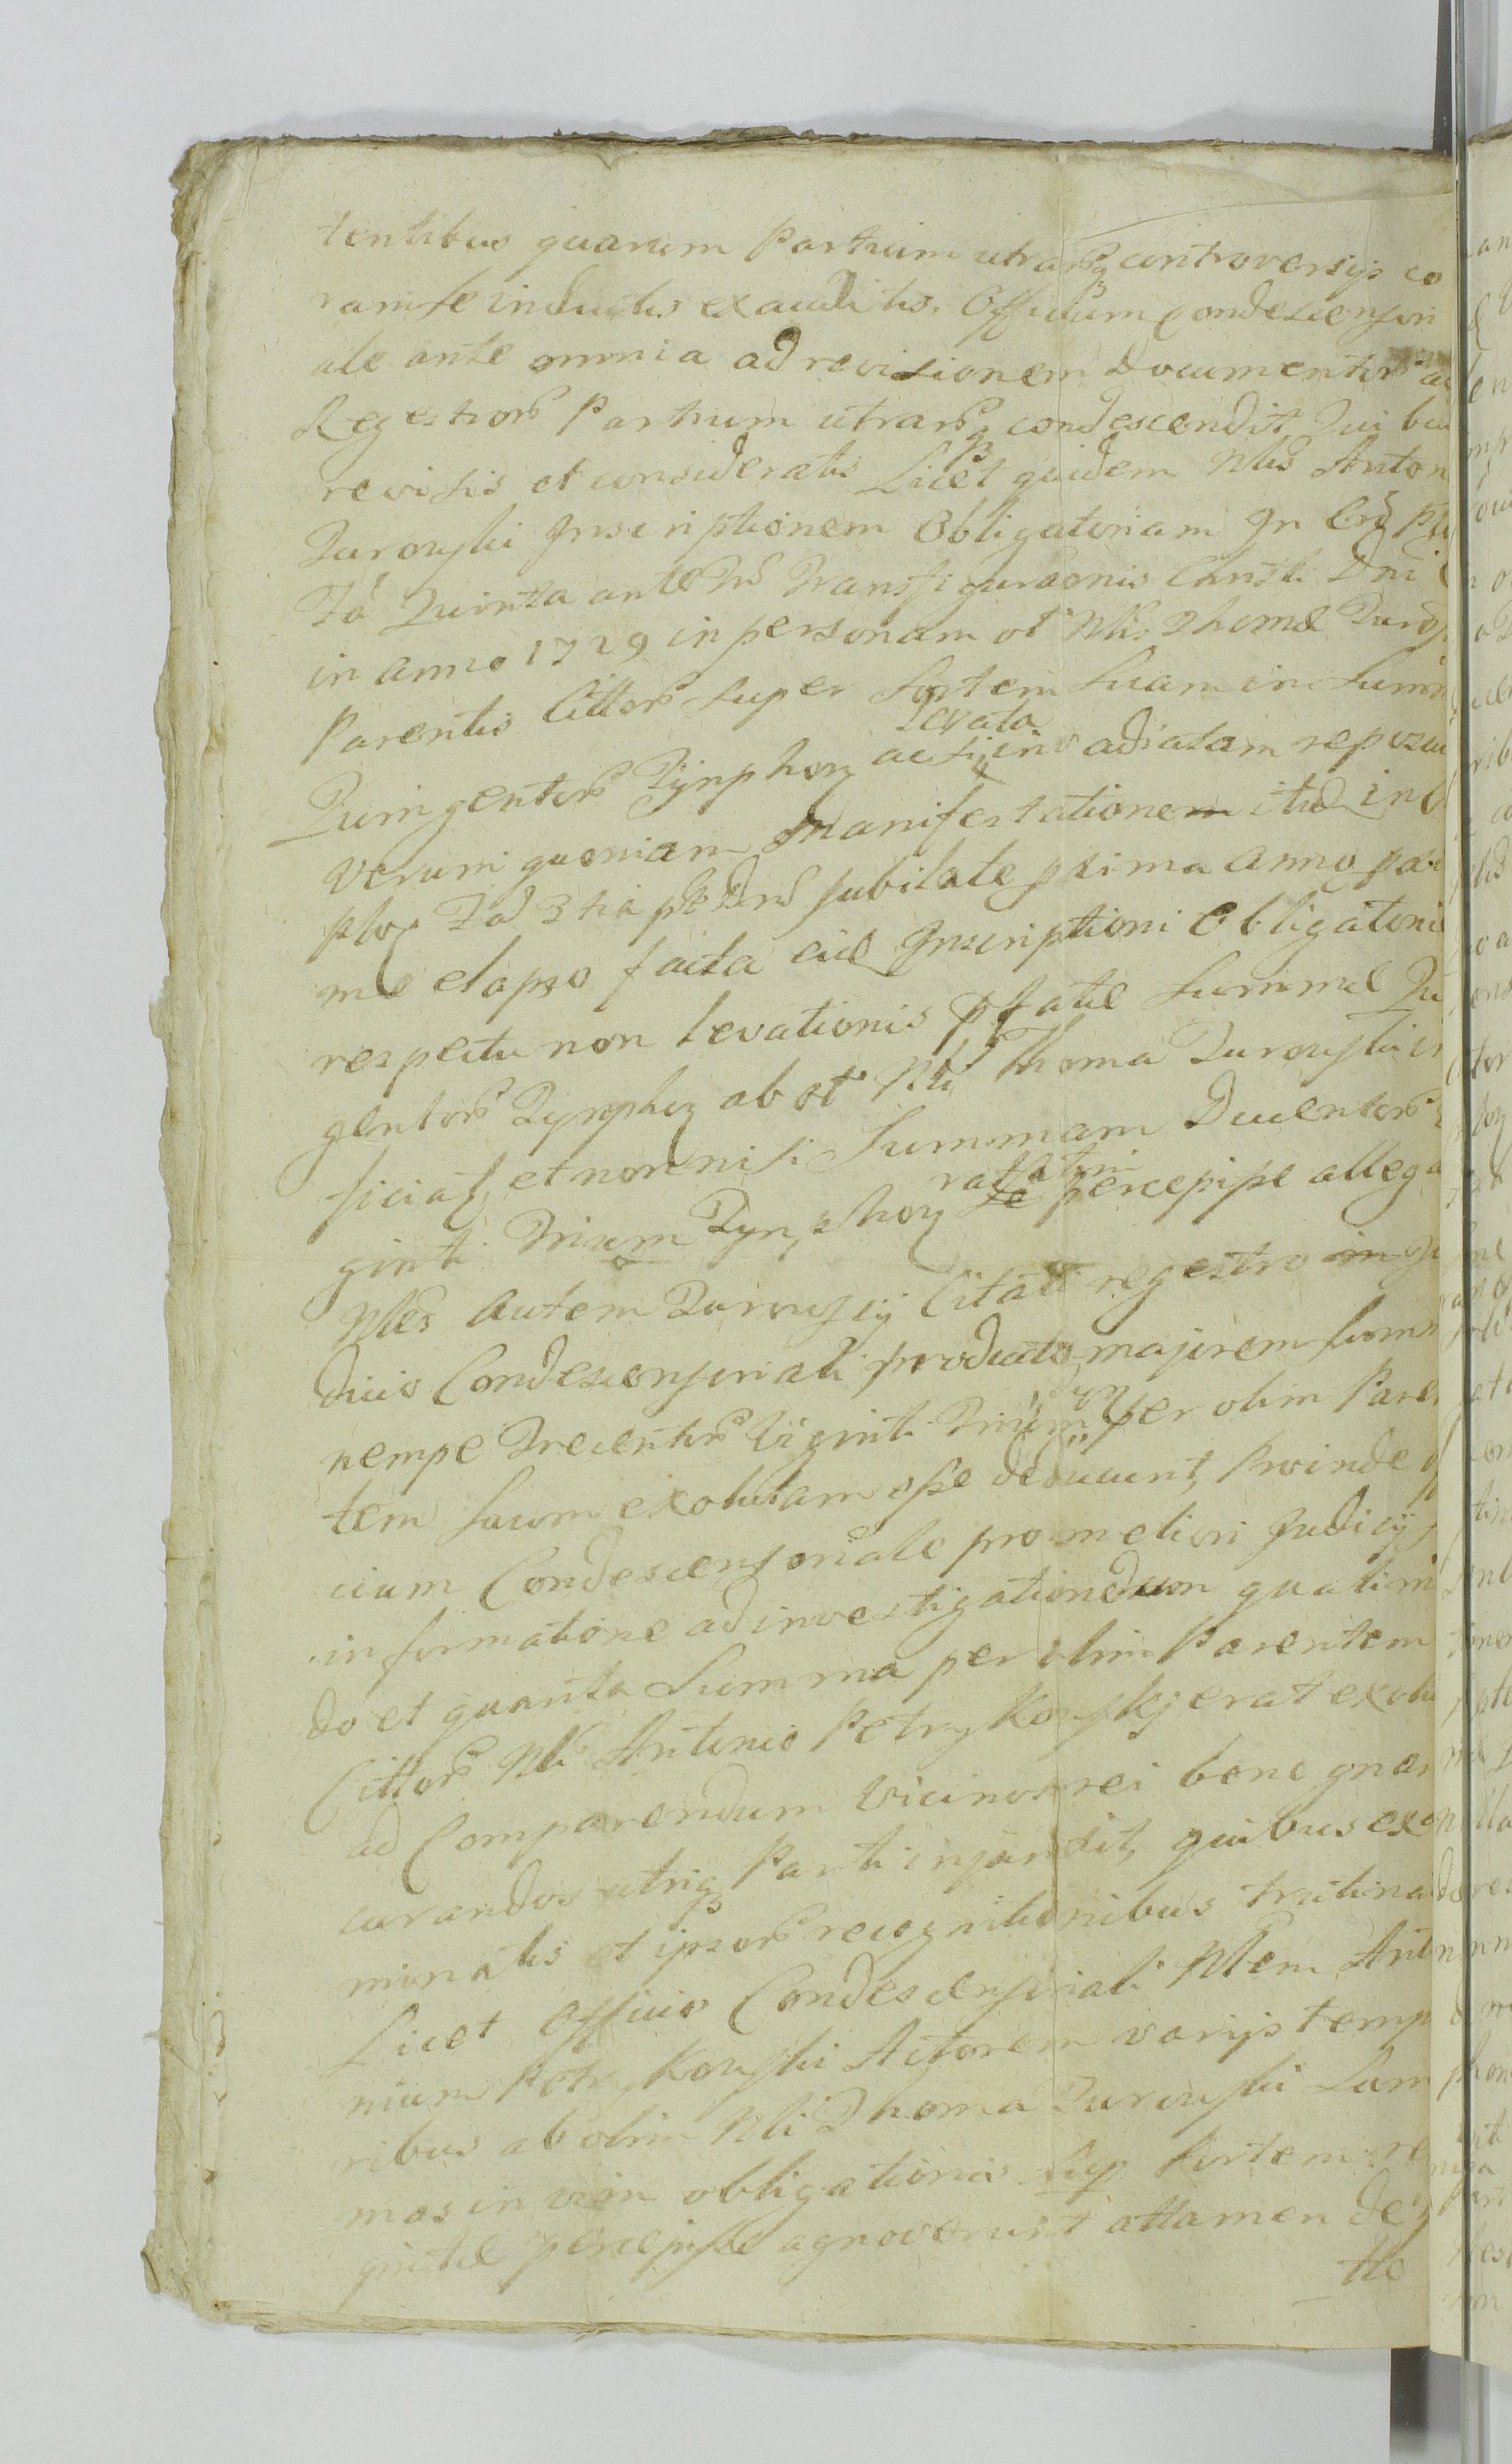 tentibus quarum Partium utrarq controversijs co
ram se inductis exauditis. Officium Condescensori
ale ante omnia ad revisionem Documentor ac
Regestror Partium utrarq condescendit, Quibus
revisis et consideratis Licet quidem Nlis Anton
Turowski Inscriptionem Obligatoriam In
Fa Quinta ante Transfiguraonis Christi Dni
in anno 1729 in personam ol Nlis Thomæ Turows
Parentis Cittor super sortem suam in Summ
Levata
Quingentor Tÿnphor ac si invadiatam repozu
Verum quoniam Manifestatione itid in
Fa 3tia pt Jubilate prima anno pro
me elapso facta eid Inscriptioni Obligatoriæ
respectu non levationis pfatæ Summæ Qu
gentor Tynphor ab ol Nli Thoma Turowski
ficiat, et non nisi Summam Ducentor
ginti Trium Tynphor percepisse allega
Nles autem Turowsÿ Citati regestro
dicio Condescensoriali producto majorem Summ
nempe Trecentor Viginti Trium per olim Paren
tem suum exolutam esse deducunt, Proinde
cium Condescensoriale pro meliori Judicÿ
informatione ad investigationedum qualimo
do et quanta Summa per olim Parentem
Cittor Nli Antonio Petrykowskj erat exolu
ad Comparendum Vicinos rei bene gnar
curandos utriq Parti injunxit, quibus exa
minatis et ipsor recognitionibus trutinatis
Licet Officio Condescensoriali Nlem Anto
nium Petrykowski Actorem varijs tempo
ribus ab olim Nli Thoma Turowski Sum
mas in vim obligationis Sup sortem
percepisse agnoverunt attamen de
tto